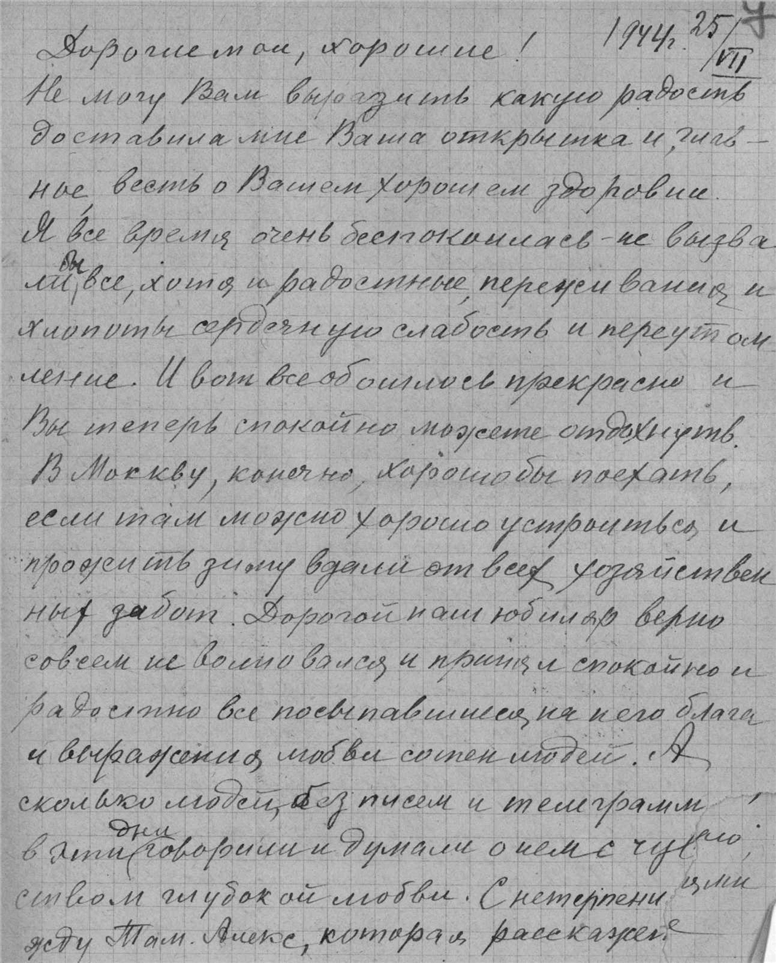 1944г. 25/VII
Дорогие мои, хорошие!
Не могу Вам выразить какую радость
доставила мне Ваша открытка и, глав-
ное, весть о Вашем хорошем здоровии.
Я все время очень беспокоилась – не вызва
ли бы, все, хотя и радостные, переживания и
хлопоты сердечную слабость и переутом
ление. И вот все обошлось прекрасно и
Вы теперь спокойно можете отдохнуть.
В Москву, конечно, хорошо бы поехать,
если там можно хорошо устроиться и
прожить зиму вдали от всех хозяйствен
ных забот. Дорогой наш юбиляр верно
совсем не волновался и принял спокойно и
радостно все посыпавшиеся на него блага
и выражения любви сотен людей. А
сколько людей, без писем и телеграмм,
в эти дни говорили и думали о нем с чув
ством глубокой любви. С нетерпени
жду Там. Алекс, которая расскажет